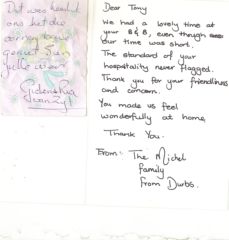 Dat was heerlik
ons het die
Dear Tony
We had a lovely time at
your B&B, even though
our time was short.
The standard of your
hospitality never flagged.
Thank you for your friendliness
and concern.
You made us feel
wonderfully at home
Thank You.
From:- The Michel
Family
from Durbs.